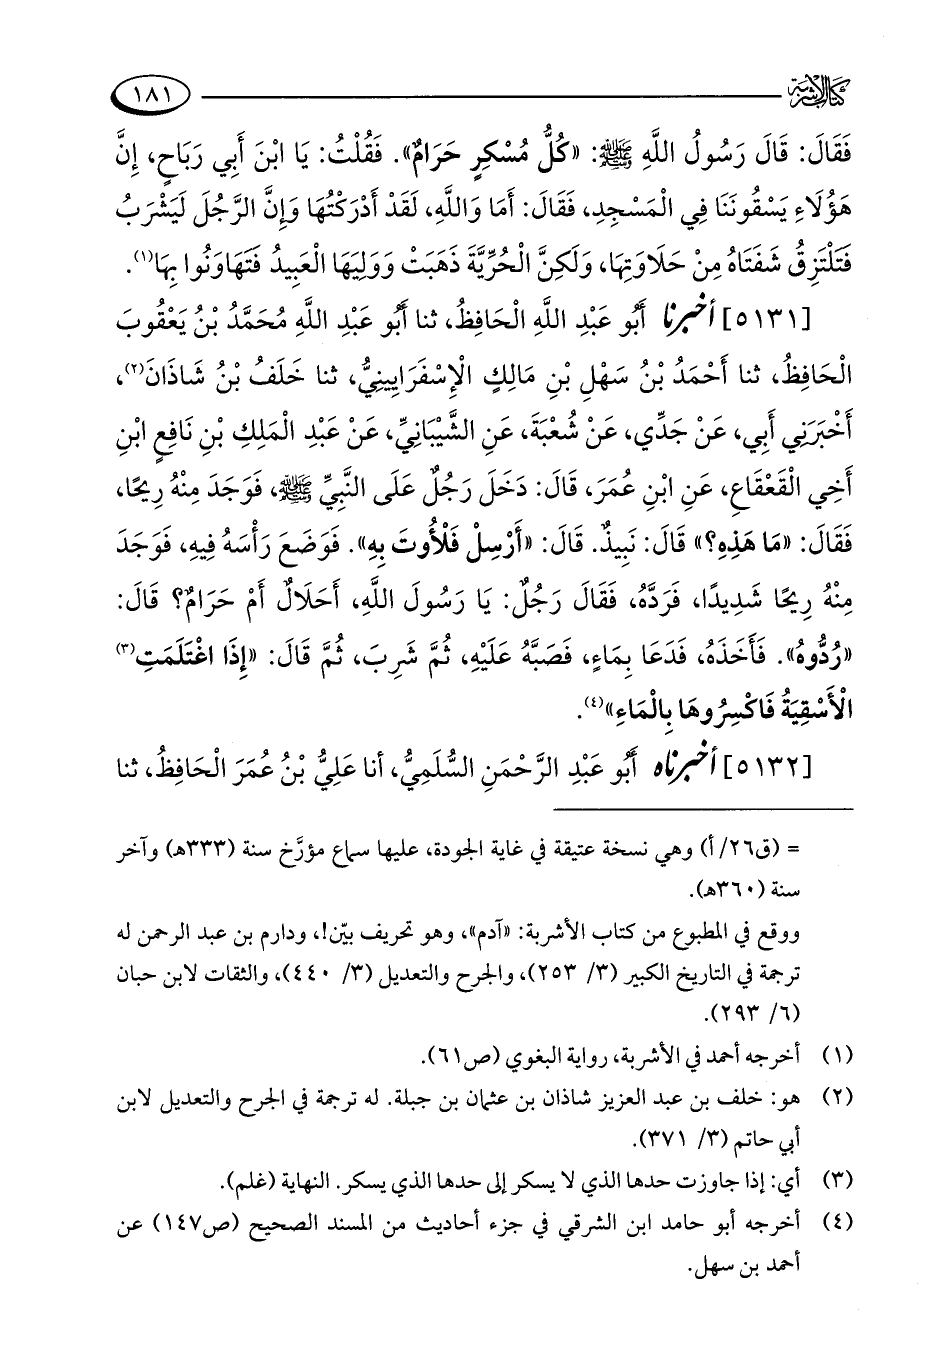 كتاب الأشربة
١٨١
فَقَالَ: قَالَ رَسُولُ اللَّهِ ﷺ: «كُلُّ مُسْكِرٍ حَرَامٌ». فَقُلْتُ: يَا ابْنَ أَبِي رَبَاحٍ، إِنَّ
هَؤُلَاءِ يَسْقُونَنَا فِي الْمَسْجِدِ، فَقَالَ: أَمَا وَاللَّهِ، لَقَدْ أَدْرَكْتُهَا وَإِنَّ الرَّجُلَ لَيَشْرَبُ
فَتَلْتَزِقُ شَفَتَاهُ مِنْ حَلَاوَتِهَا، وَلَكِنَّ الْحُرِّيَّةَ ذَهَبَتْ وَوَلِيَهَا الْعَبِيدُ فَتَهَاوَنُوا بِهَا(١).
[٥١٣١] أخبرنا أَبُو عَبْدِ اللَّهِ الْحَافِظُ، ثنا أَبُو عَبْدِ اللَّهِ مُحَمَّدُ بْنُ يَعْقُوبَ
الْحَافِظُ، ثنا أَحْمَدُ بْنُ سَهْلِ بْنِ مَالِكٍ الْإِسْفَرَايِينِيُّ، ثنا خَلَفُ بْنُ شَاذَانَ(٢)،
أَخْبَرَنِي أَبِي، عَنْ جَدِّي، عَنْ شُعْبَةَ، عَنِ الشَّيْبَانِيِّ، عَنْ عَبْدِ الْمَلِكِ بْنِ نَافِعٍ ابْنِ
أَخِي الْقَعْقَاعِ، عَنِ ابْنِ عُمَرَ، قَالَ: دَخَلَ رَجُلٌ عَلَى النَّبِيِّ ﷺ، فَوَجَدَ مِنْهُ رِيحًا،
فَقَالَ: «مَا هَذِهِ؟» قَالَ: نَبِيذٌ. قَالَ: «أَرْسِلْ فَلْأُوتَ بِهِ». فَوَضَعَ رَأْسَهُ فِيهِ، فَوَجَدَ
مِنْهُ رِيحًا شَدِيدًا، فَرَدَّهُ، فَقَالَ رَجُلٌ: يَا رَسُولَ اللَّهِ، أَحَلَالٌ أَمْ حَرَامٌ؟ قَالَ:
«رُدُّوهُ». فَأَخَذَهُ، فَدَعَا بِمَاءٍ، فَصَبَّهُ عَلَيْهِ، ثُمَّ شَرِبَ، ثُمَّ قَالَ: «إِذَا اغْتَلَمَتِ(٣)
الْأَسْقِيَةُ فَاكْسِرُوهَا بِالْمَاءِ»(٤).
[٥١٣٢] أخبرناه أَبُو عَبْدِ الرَّحْمَنِ السُّلَمِيُّ، أنا عَلِيُّ بْنُ عُمَرَ الْحَافِظُ، ثنا
= (ق٢٦/ أ) وهي نسخة عتيقة في غاية الجودة، عليها سماع مؤرَّخ سنة (٣٣٣هـ) وآخر
سنة (٣٦٠هـ).
ووقع في المطبوع من كتاب الأشربة: «آدم»، وهو تحريف بيّن!، ودارم بن عبد الرحمن له
ترجمة في التاريخ الكبير (٣/ ٢٥٣)، والجرح والتعديل (٣/ ٤٤٠)، والثقات لابن حبان
(٦/ ٢٩٣).
(١) أخرجه أحمد في الأشربة، رواية البغوي (ص٦١).
(٢) هو: خلف بن عبد العزيز شاذان بن عثمان بن جبلة. له ترجمة في الجرح والتعديل لابن
أبي حاتم (٣/ ٣٧١).
(٣) أي: إذا جاوزت حدها الذي لا يسكر إلى حدها الذي يسكر. النهاية (غلم).
(٤) أخرجه أبو حامد ابن الشرقي في جزء أحاديث من المسند الصحيح (ص١٤٧) عن
أحمد بن سهل.